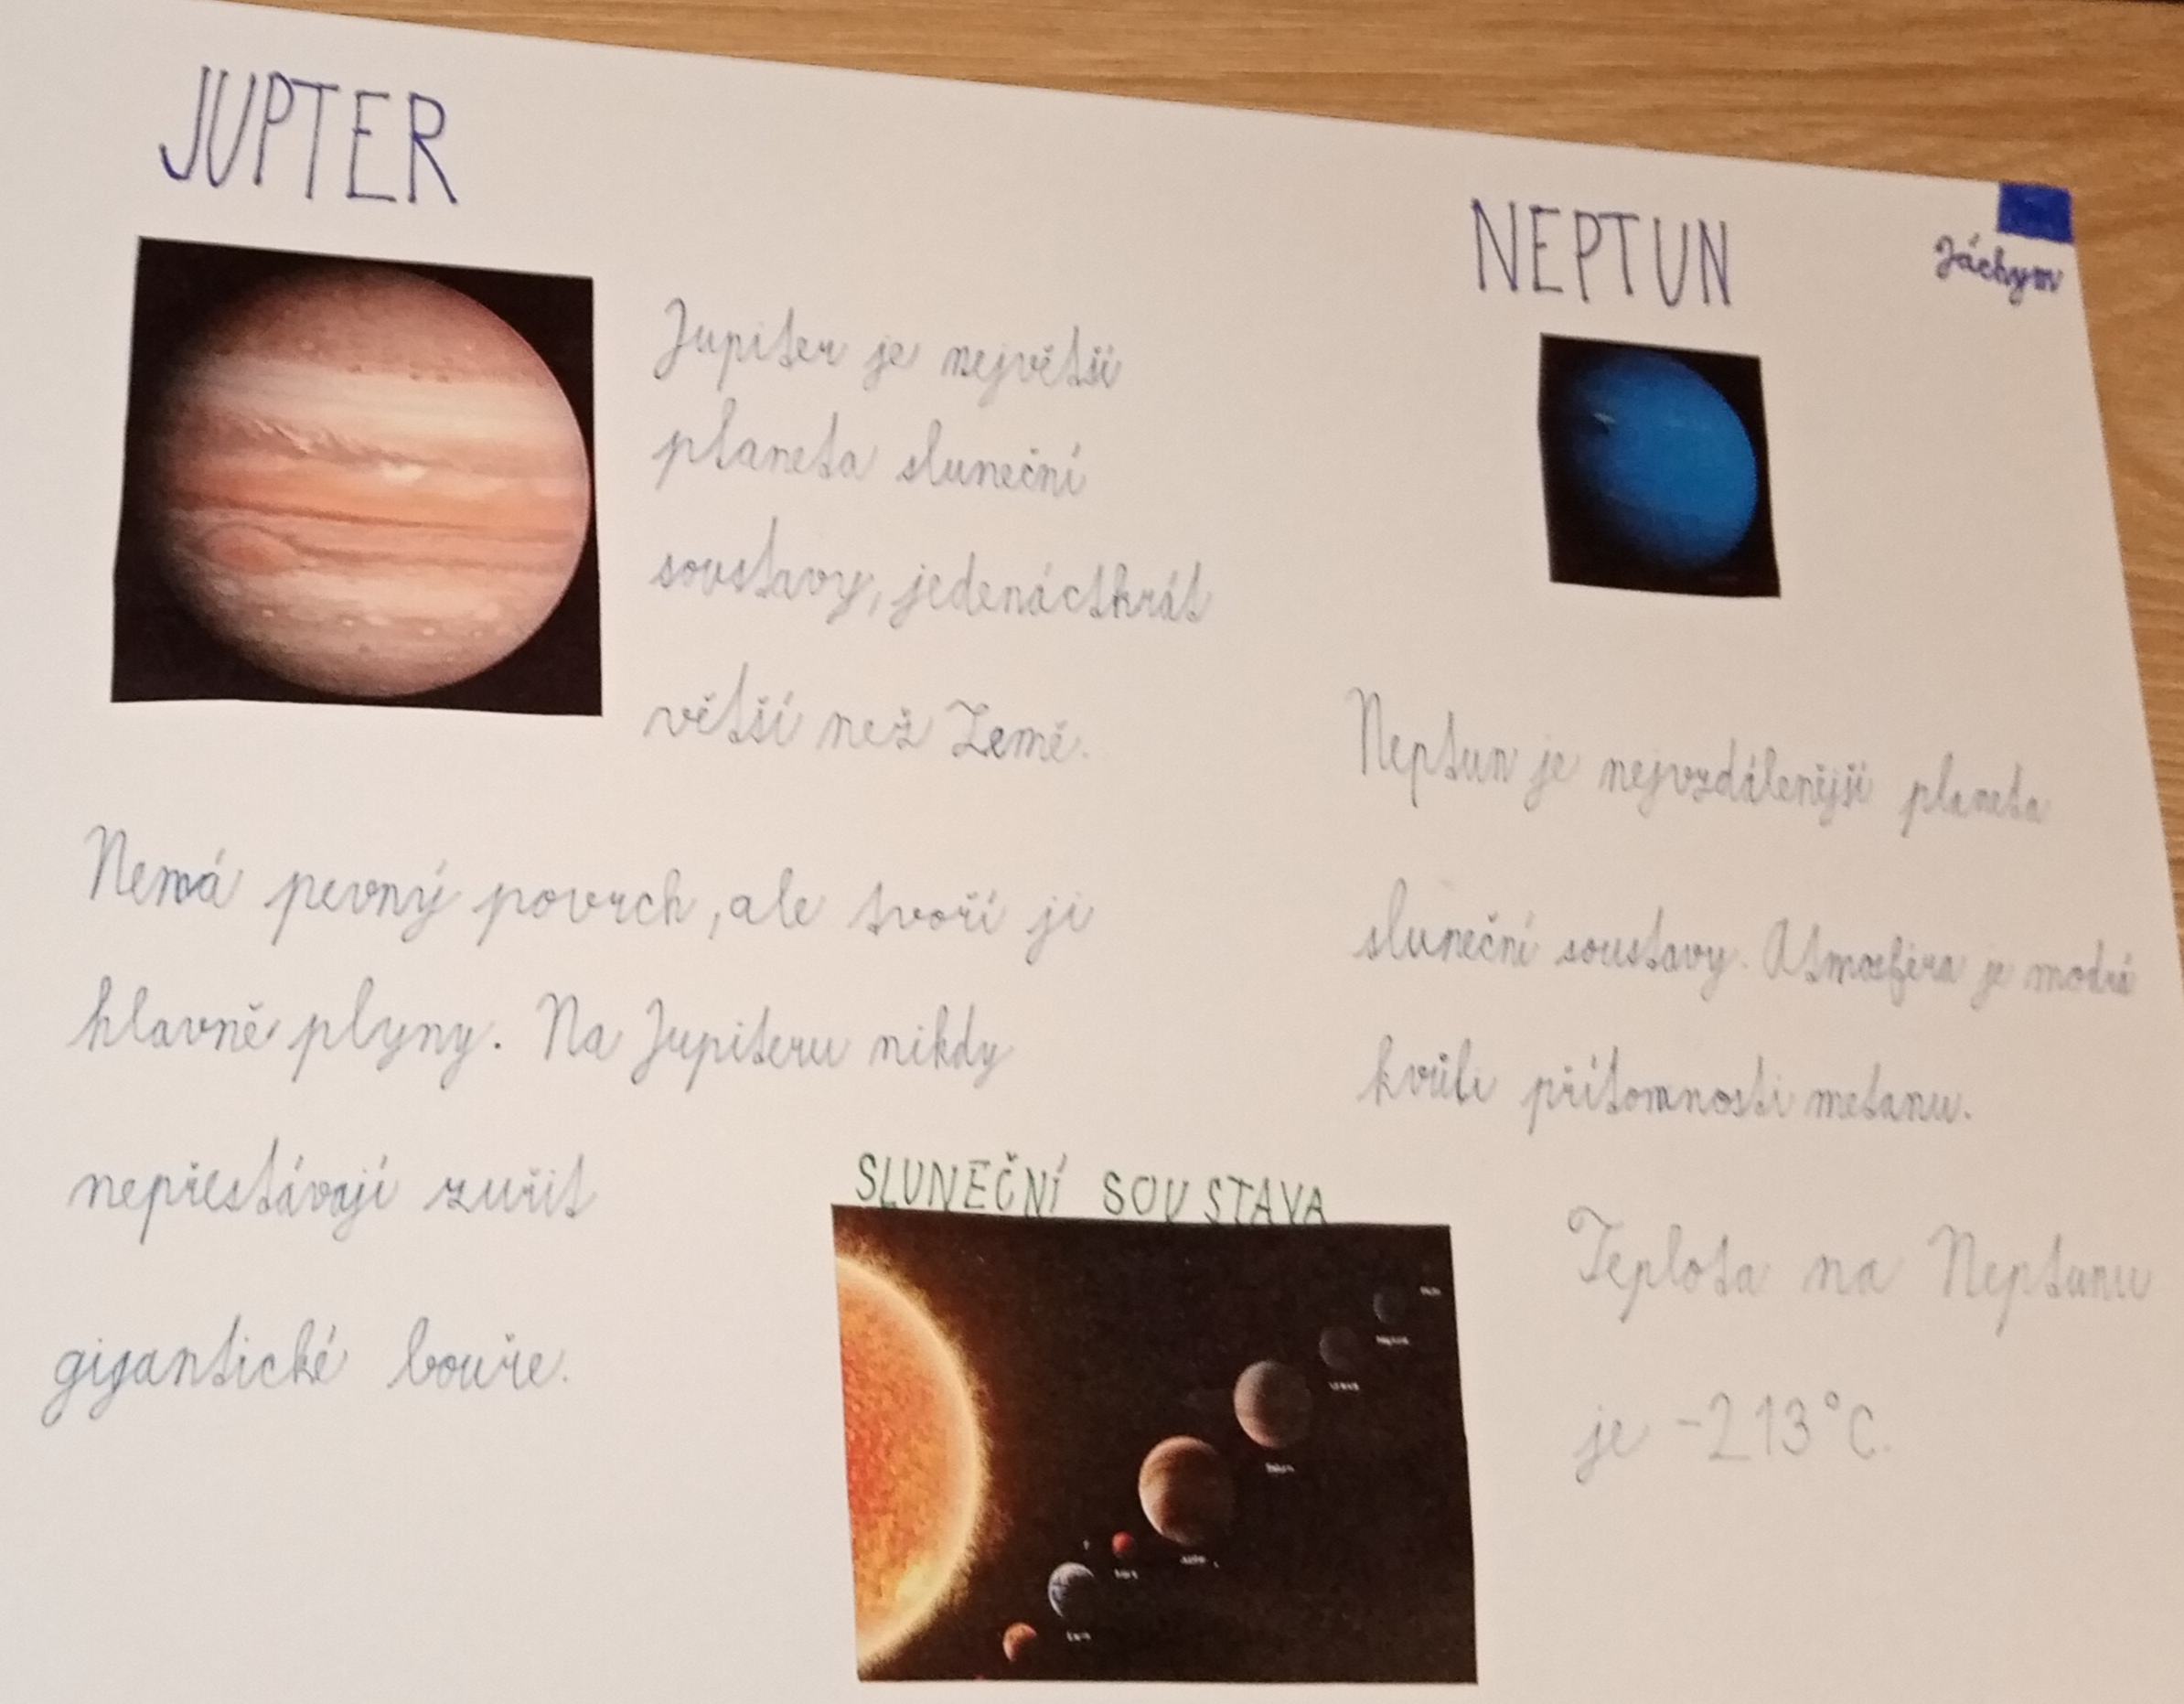 JUPTER
Jupiter je největší
planeta sluneční
soustavy, jedenáctkrát
větší než Země.
Nemá pevný povrch, ale tvoří ji
hlavně plyny. Na Jupiteru nikdy
nepřestávají zuřit
gigantické bouře.
NEPTUN
Jáchym
Neptun je nejvzdálenější planeta
sluneční soustavy. Atmosféra je modrá
kvůli přítomnosti metanu.
Teplota na Neptunu
je -213°C.
SLUNEČNÍ SOUSTAVA